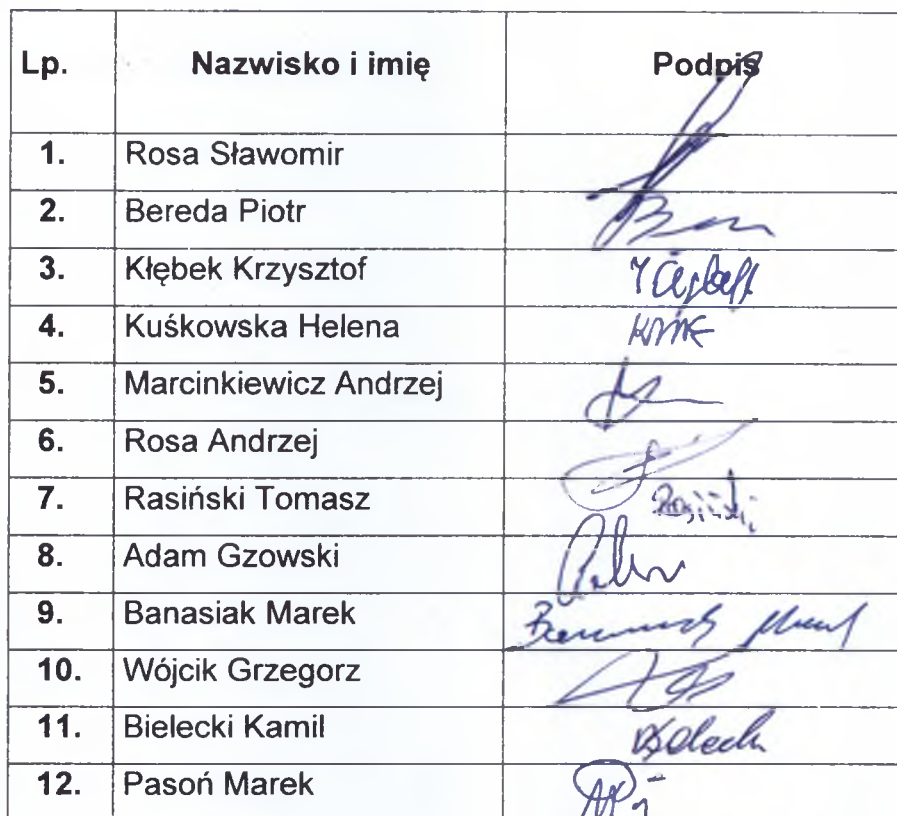 Lp. Nazwisko i imię Podpis
1. Rosa Sławomir
2. Bereda Piotr
3. Kłębek Krzysztof
4. Kuśkowska Helena
5. Marcinkiewicz Andrzej
6. Rosa Andrzej
7. Rasiński Tomasz Rasiński
8. Adam Gzowski
9. Banasiak Marek
10. Wójcik Grzegorz
11. Bielecki Kamil
12. Pasoń Marek